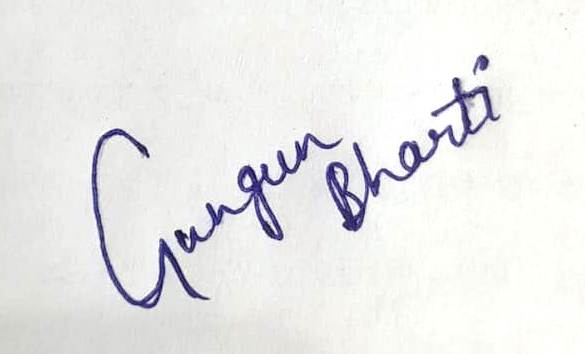 Gungun
Bharti